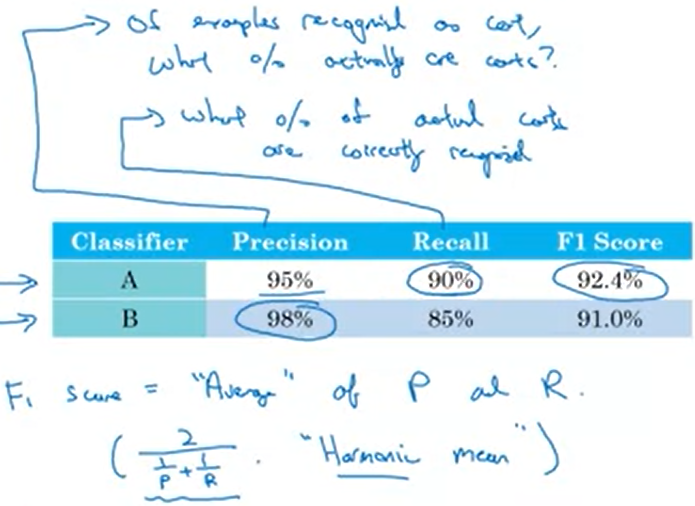 Of examples recognized as cat,
What % actually are cats?
What % of actual cats
are correctly recognized
Classifier Precision Recall F1 Score
A 95% 90% 92.4%
B 98% 85% 91.0%
F₁ score = "Average" of P and R.
( 2 / (1/P + 1/R) . "Harmonic mean" )